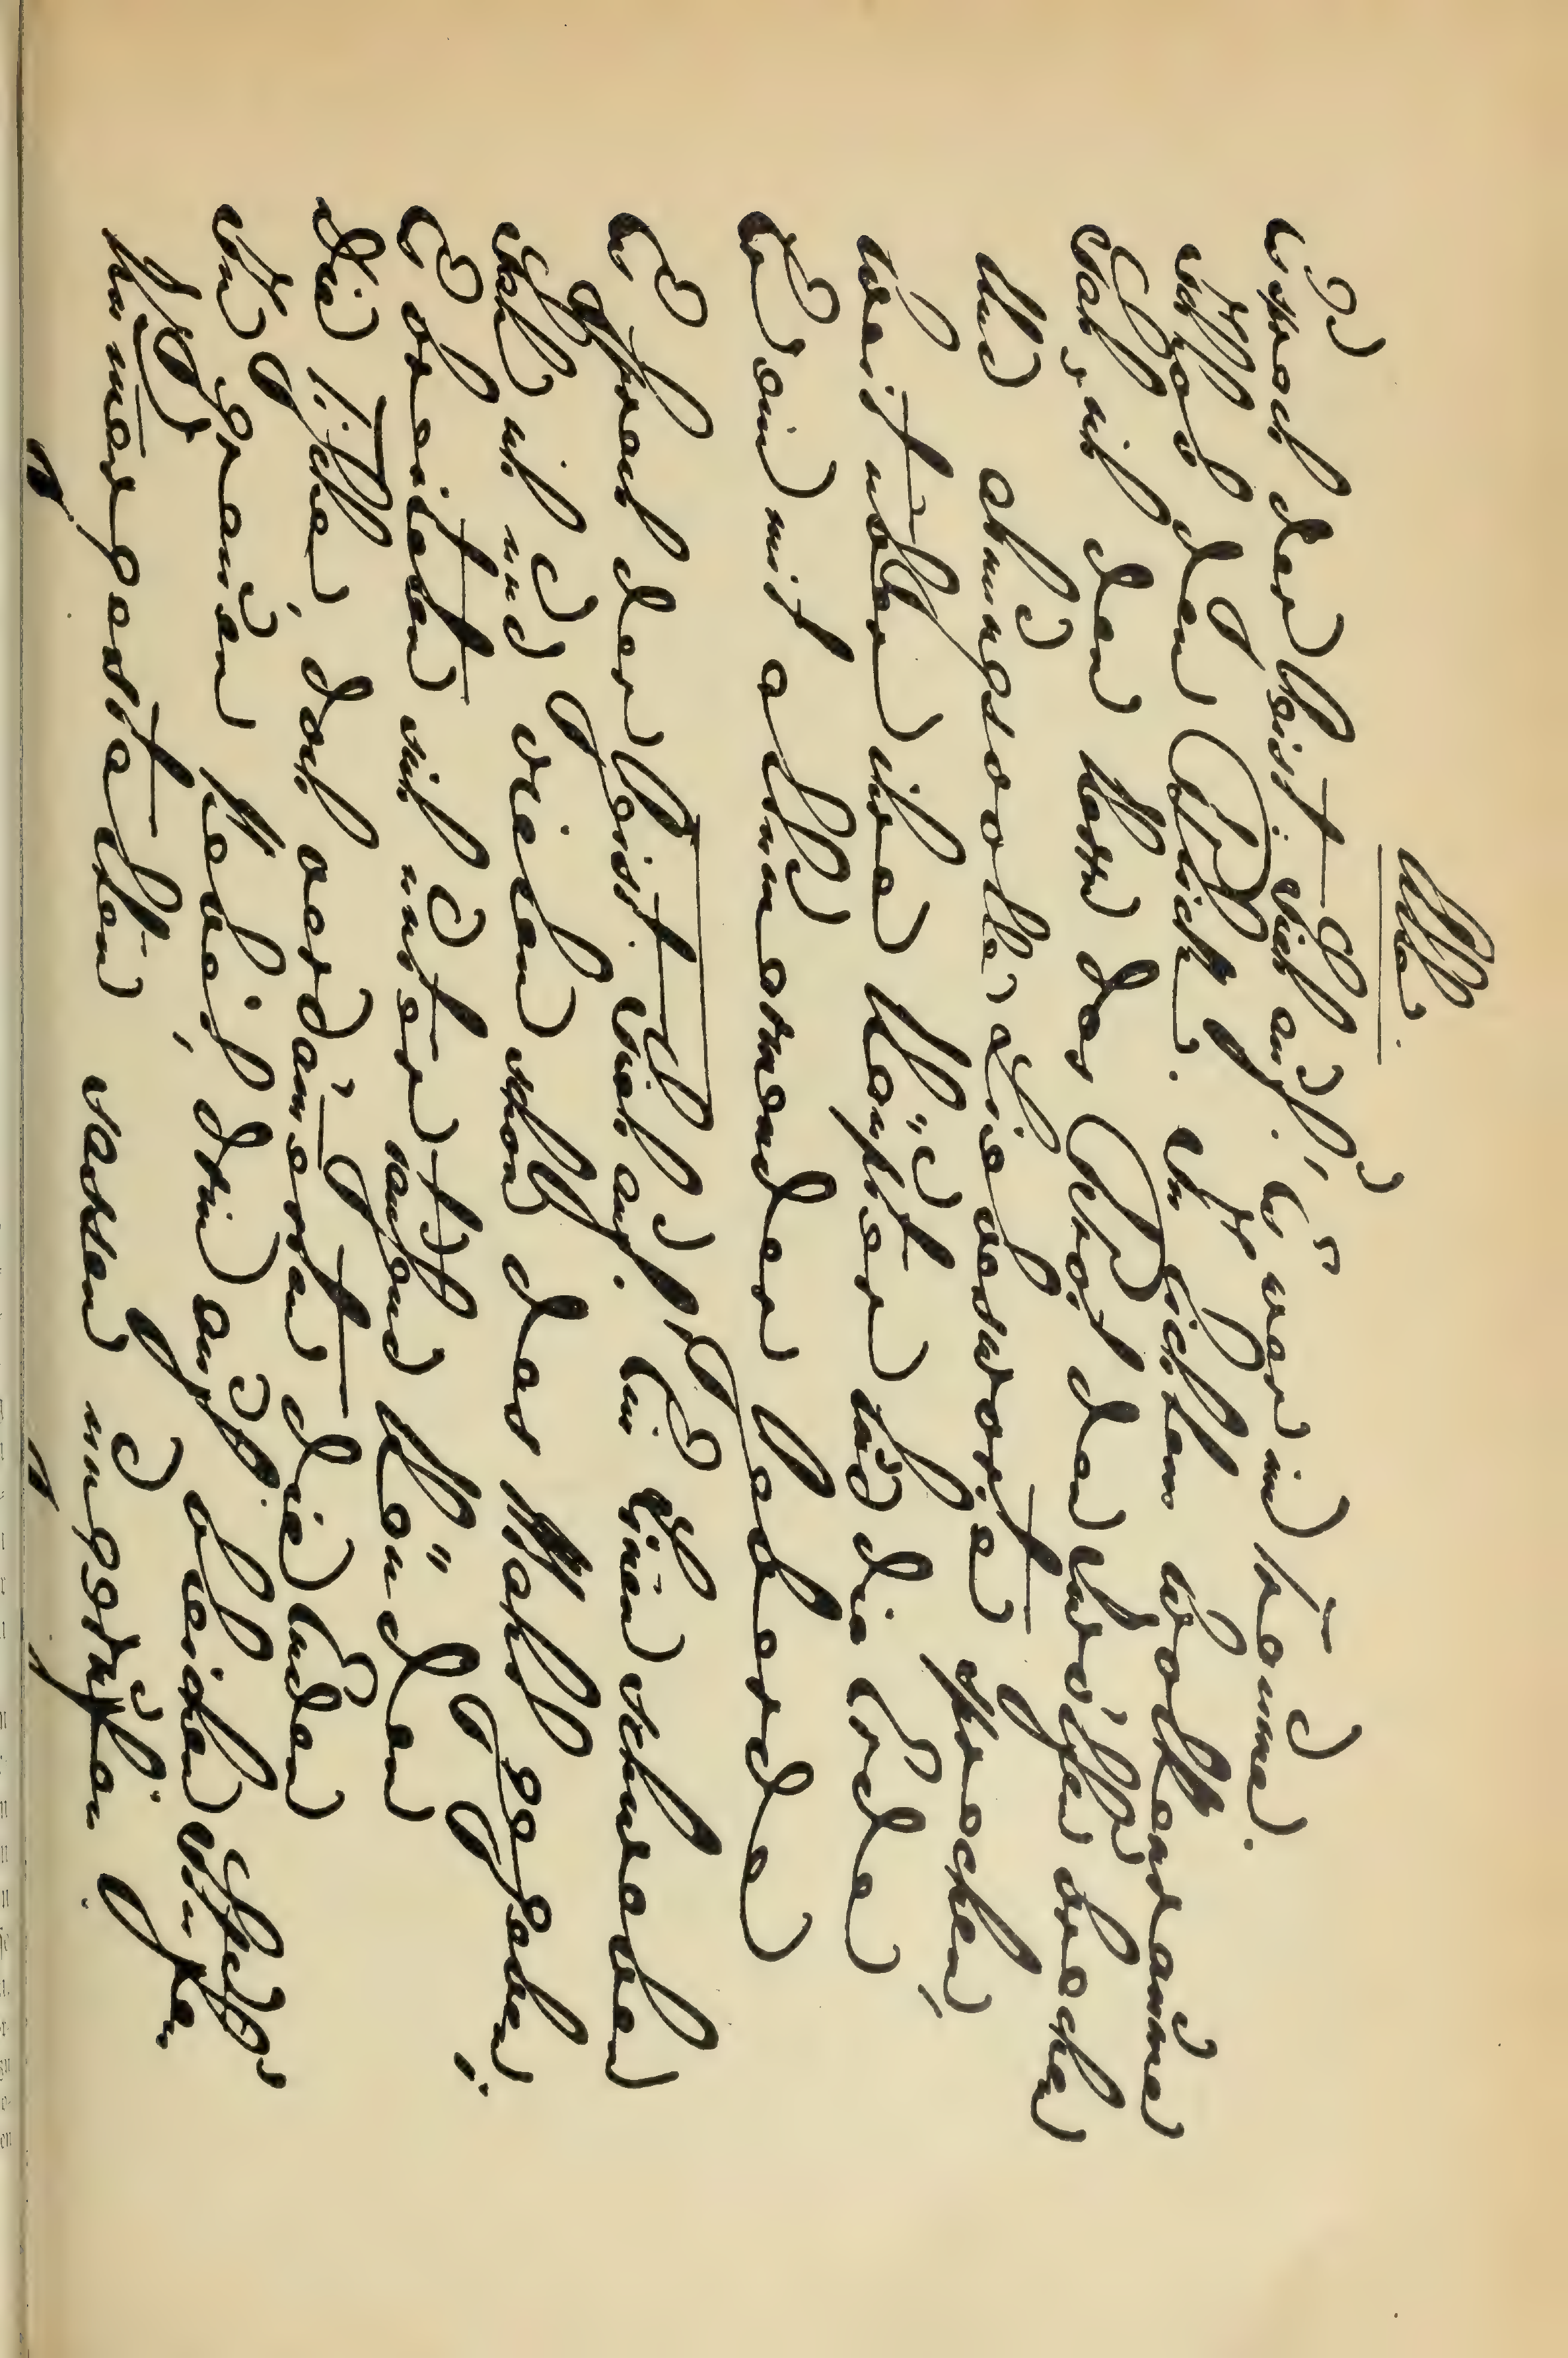 Alle.
Es sprach der Geist: Sieh auf! Es war im Traume.
Ich hob den Blick. In lichtem Wolkenraume
Sah ich den Herrn das Brot den Zwölfen brechen
Und ahnungsvolle Liebesworte sprechen.
Weit über ihre Häupter lud die Erde
Er ein mit allumarmender Geberde.
Es sprach der Geist: Sieh auf! Ein Linnen schweben
Sah ich und vielen schon das Mahl gegeben;
Es breiteten sich unter tausend Händen
Die Tische, doch verdämmerten die Enden
In grauen Nebel, drin auf bleichen Stufen
Kummergestalten sassen ungerufen.